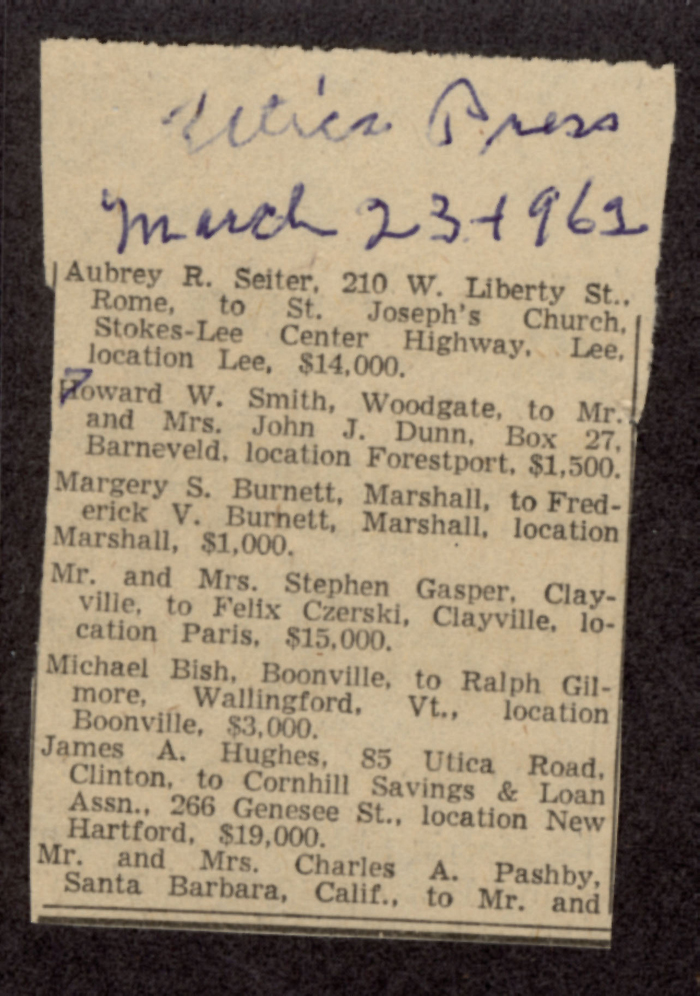 Utica Press
March 23-1962
Aubrey R. Seiter, 210 W. Liberty St.,
Rome, to St. Joseph's Church,
Stokes-Lee Center Highway, Lee,
location Lee, $14,000.
Howard W. Smith, Woodgate, to Mr.
and Mrs. John J. Dunn, Box 27,
Barneveld, location Forestport, $1,500.
Margery S. Burnett, Marshall, to Fred-
erick V. Burnett, Marshall, location
Marshall, $1,000.
Mr. and Mrs. Stephen Gasper, Clay-
ville, to Felix Czerski, Clayville, lo-
cation Paris, $15,000.
Michael Bish, Boonville, to Ralph Gil-
more, Wallingford, Vt., location
Boonville, $3,000.
James A. Hughes, 85 Utica Road,
Clinton, to Cornhill Savings & Loan
Assn., 266 Genesee St., location New
Hartford, $19,000.
Mr. and Mrs. Charles A. Pashby,
Santa Barbara, Calif., to Mr. and